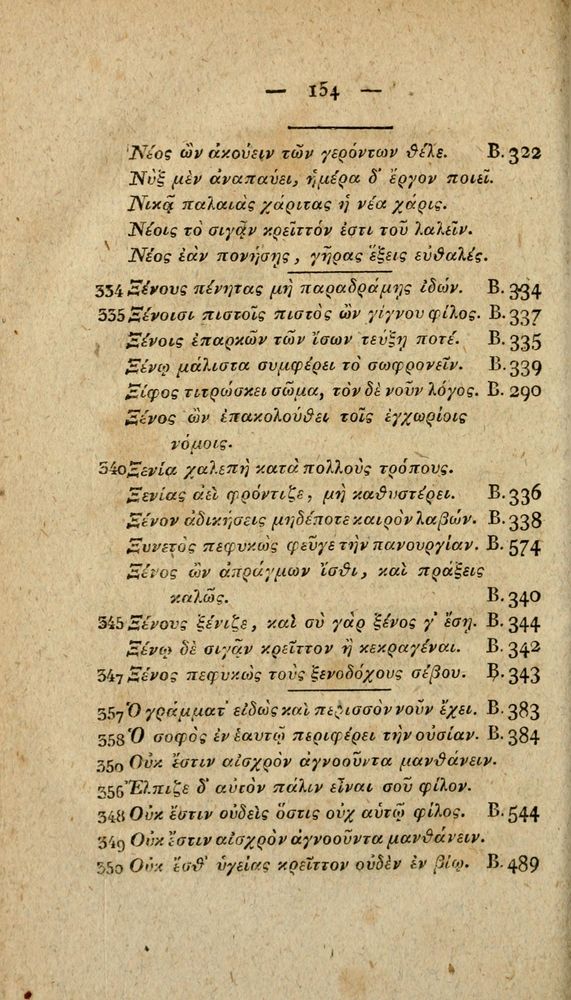 — 154 —
Νέος ὢν ἀκούειν τῶν γερόντων θέλε. B. 322
Νὺξ μὲν ἀναπαύει, ἡμέρα δ' ἔργον ποιεῖ.
Νικᾷ παλαιὰς χάριτας ἡ νέα χάρις.
Νέοις τὸ σιγᾷν κρεῖττόν ἐστι τοῦ λαλεῖν.
Νέος ἐὰν πονήσῃς, γῆρας ἕξεις εὐθαλές.
334 Ξένους πένητας μὴ παραδράμῃς ἰδών. B. 334
335 Ξένοισι πιστοῖς πιστὸς ὢν γίγνου φίλος. B. 337
Ξένοις ἐπαρκῶν τῶν ἴσων τεύξῃ ποτέ. B. 335
Ξένῳ μάλιστα συμφέρει τὸ σωφρονεῖν. B. 339
Ξίφος τιτρώσκει σῶμα, τὸν δὲ νοῦν λόγος. B. 290
Ξένος ὢν ἐπακολούθει τοῖς ἐγχωρίοις
νόμοις.
340 Ξενία χαλεπὴ κατὰ πολλοὺς τρόπους.
Ξενίας ἀεὶ φρόντιζε, μὴ καθυστέρει. B. 336
Ξένον ἀδικήσεις μηδέποτε καιρὸν λαβών. B. 338
Ξυνετὸς πεφυκὼς φεῦγε τὴν πανουργίαν. B. 574
Ξένος ὢν ἀπράγμων ἴσθι, καὶ πράξεις
καλῶς. B. 340
345 Ξένους ξένιζε, καὶ σὺ γὰρ ξένος γ' ἔσῃ. B. 344
Ξένῳ δὲ σιγᾷν κρεῖττον ἢ κεκραγέναι. B. 342
347 Ξένος πεφυκὼς τοὺς ξενοδόχους σέβου. B. 343
357 Ὁ γράμματ' εἰδὼς καὶ περισσὸν νοῦν ἔχει. B. 383
358 Ὁ σοφὸς ἐν ἑαυτῷ περιφέρει τὴν οὐσίαν. B. 384
350 Οὐκ ἔστιν αἰσχρὸν ἀγνοοῦντα μανθάνειν.
356 Ἔλπιζε δ' αὐτὸν πάλιν εἶναί σου φίλον.
348 Οὐκ ἔστιν οὐδεὶς ὅστις οὐχ αὑτῷ φίλος. B. 544
349 Οὐκ ἔστιν αἰσχρὸν ἀγνοοῦντα μανθάνειν.
350 Οὐκ ἔσθ' ὑγιείας κρεῖττον οὐδὲν ἐν βίῳ. B. 489